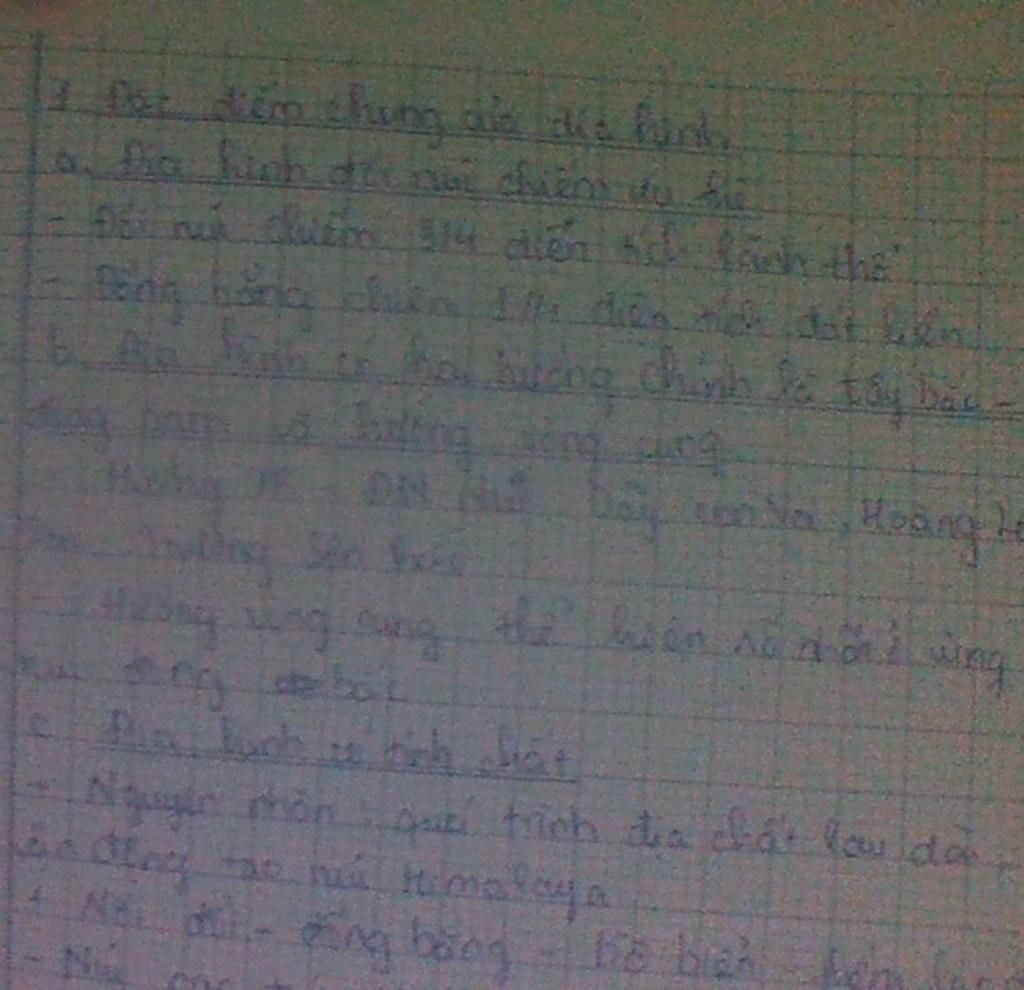 1 Đặc điểm chung của địa hình.
a. Địa hình đồi núi chiếm ưu thế
- Đồi núi chiếm 3/4 diện tích lãnh thổ
- Đồng bằng chiếm 1/4 diện tích đất liền
b. Địa hình có hai hướng chính là tây bắc -
đông nam và hướng vòng cung
Hướng TB - ĐN như Dãy con voi, Hoàng
Trường Sơn bắc
+ Hướng vòng cung thể hiện rõ nhất ở vùng
núi đông bắc
c. Địa hình có tính chất
+ Nguyên nhân: quá trình địa chất lâu dài,
vận động tạo núi Himalaya
+ Núi đồi - đồng bằng - bờ biển - thềm lục
- Núi